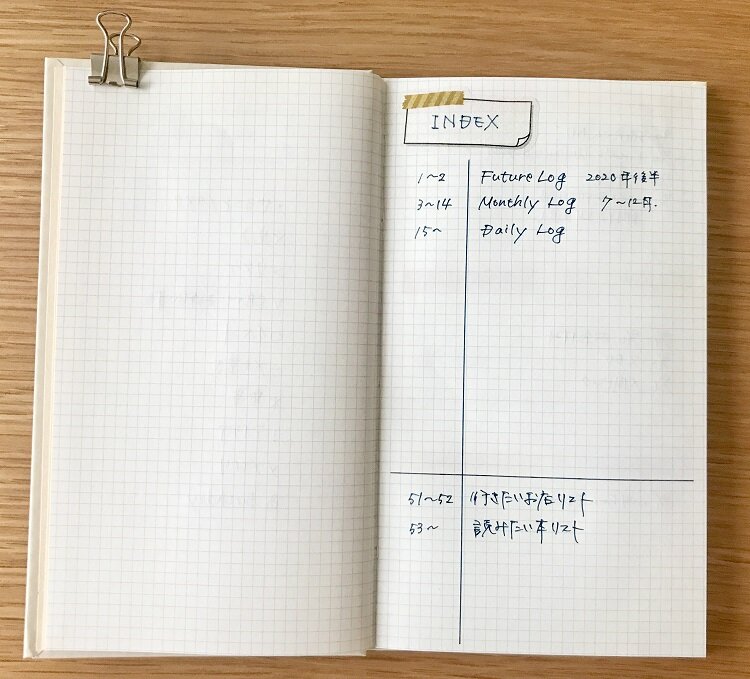 INDEX
1~2 Future Log 2020年後半
3~14 Monthly Log 7~12月.
15~ Daily Log
51~52 行きたいお店リスト
53~ 読みたい本リスト